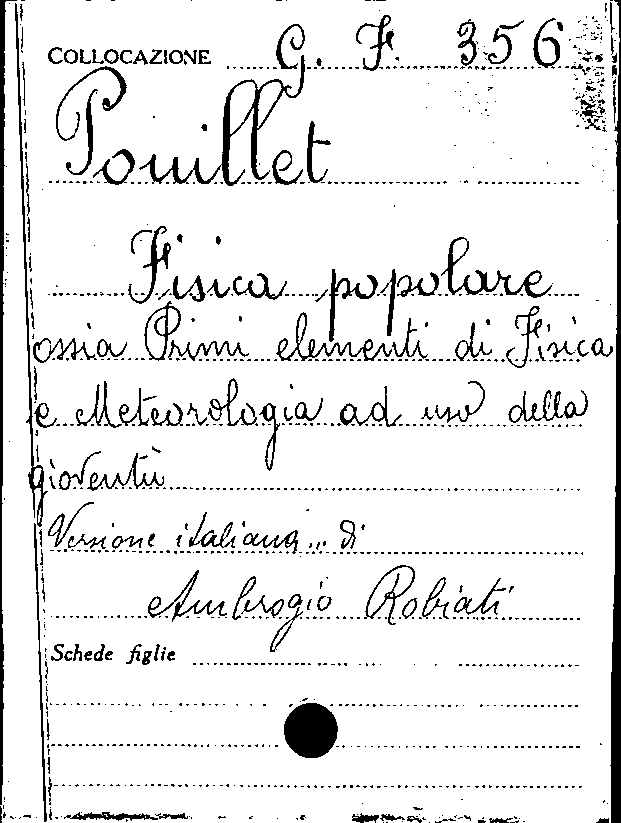 COLLOCAZIONE G. F. 356
Pouillet
Fisica popolare
ossia Primi elementi di Fisica
e Meteorologia ad uso della
gioventù
Versione italiana... di
Ambrogio Robiati
Schede figlie